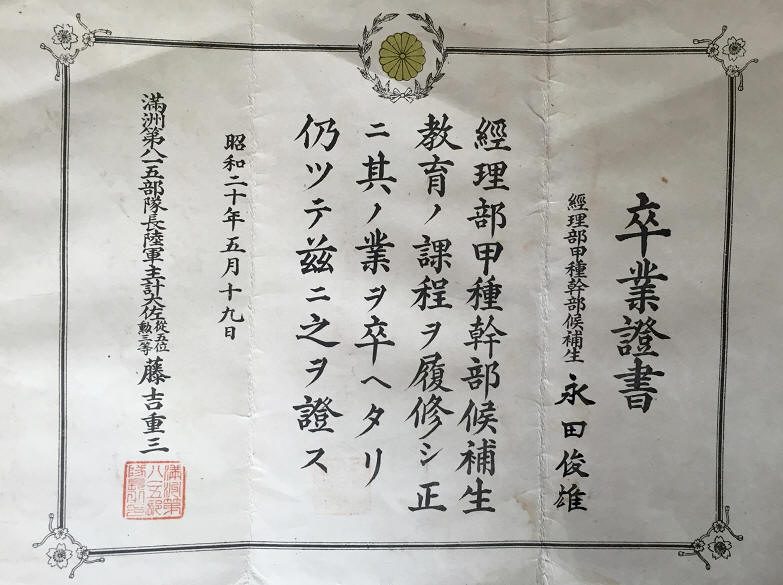 卒業證書
經理部甲種幹部候補生 永田俊雄
經理部甲種幹部候補生
教育ノ課程ヲ履修シ正
ニ其ノ業ヲ卒ヘタリ
仍ツテ茲ニ之ヲ證ス
昭和二十年五月十九日
滿洲第八一五部隊長陸軍主計大佐從五位勲三等藤吉重三